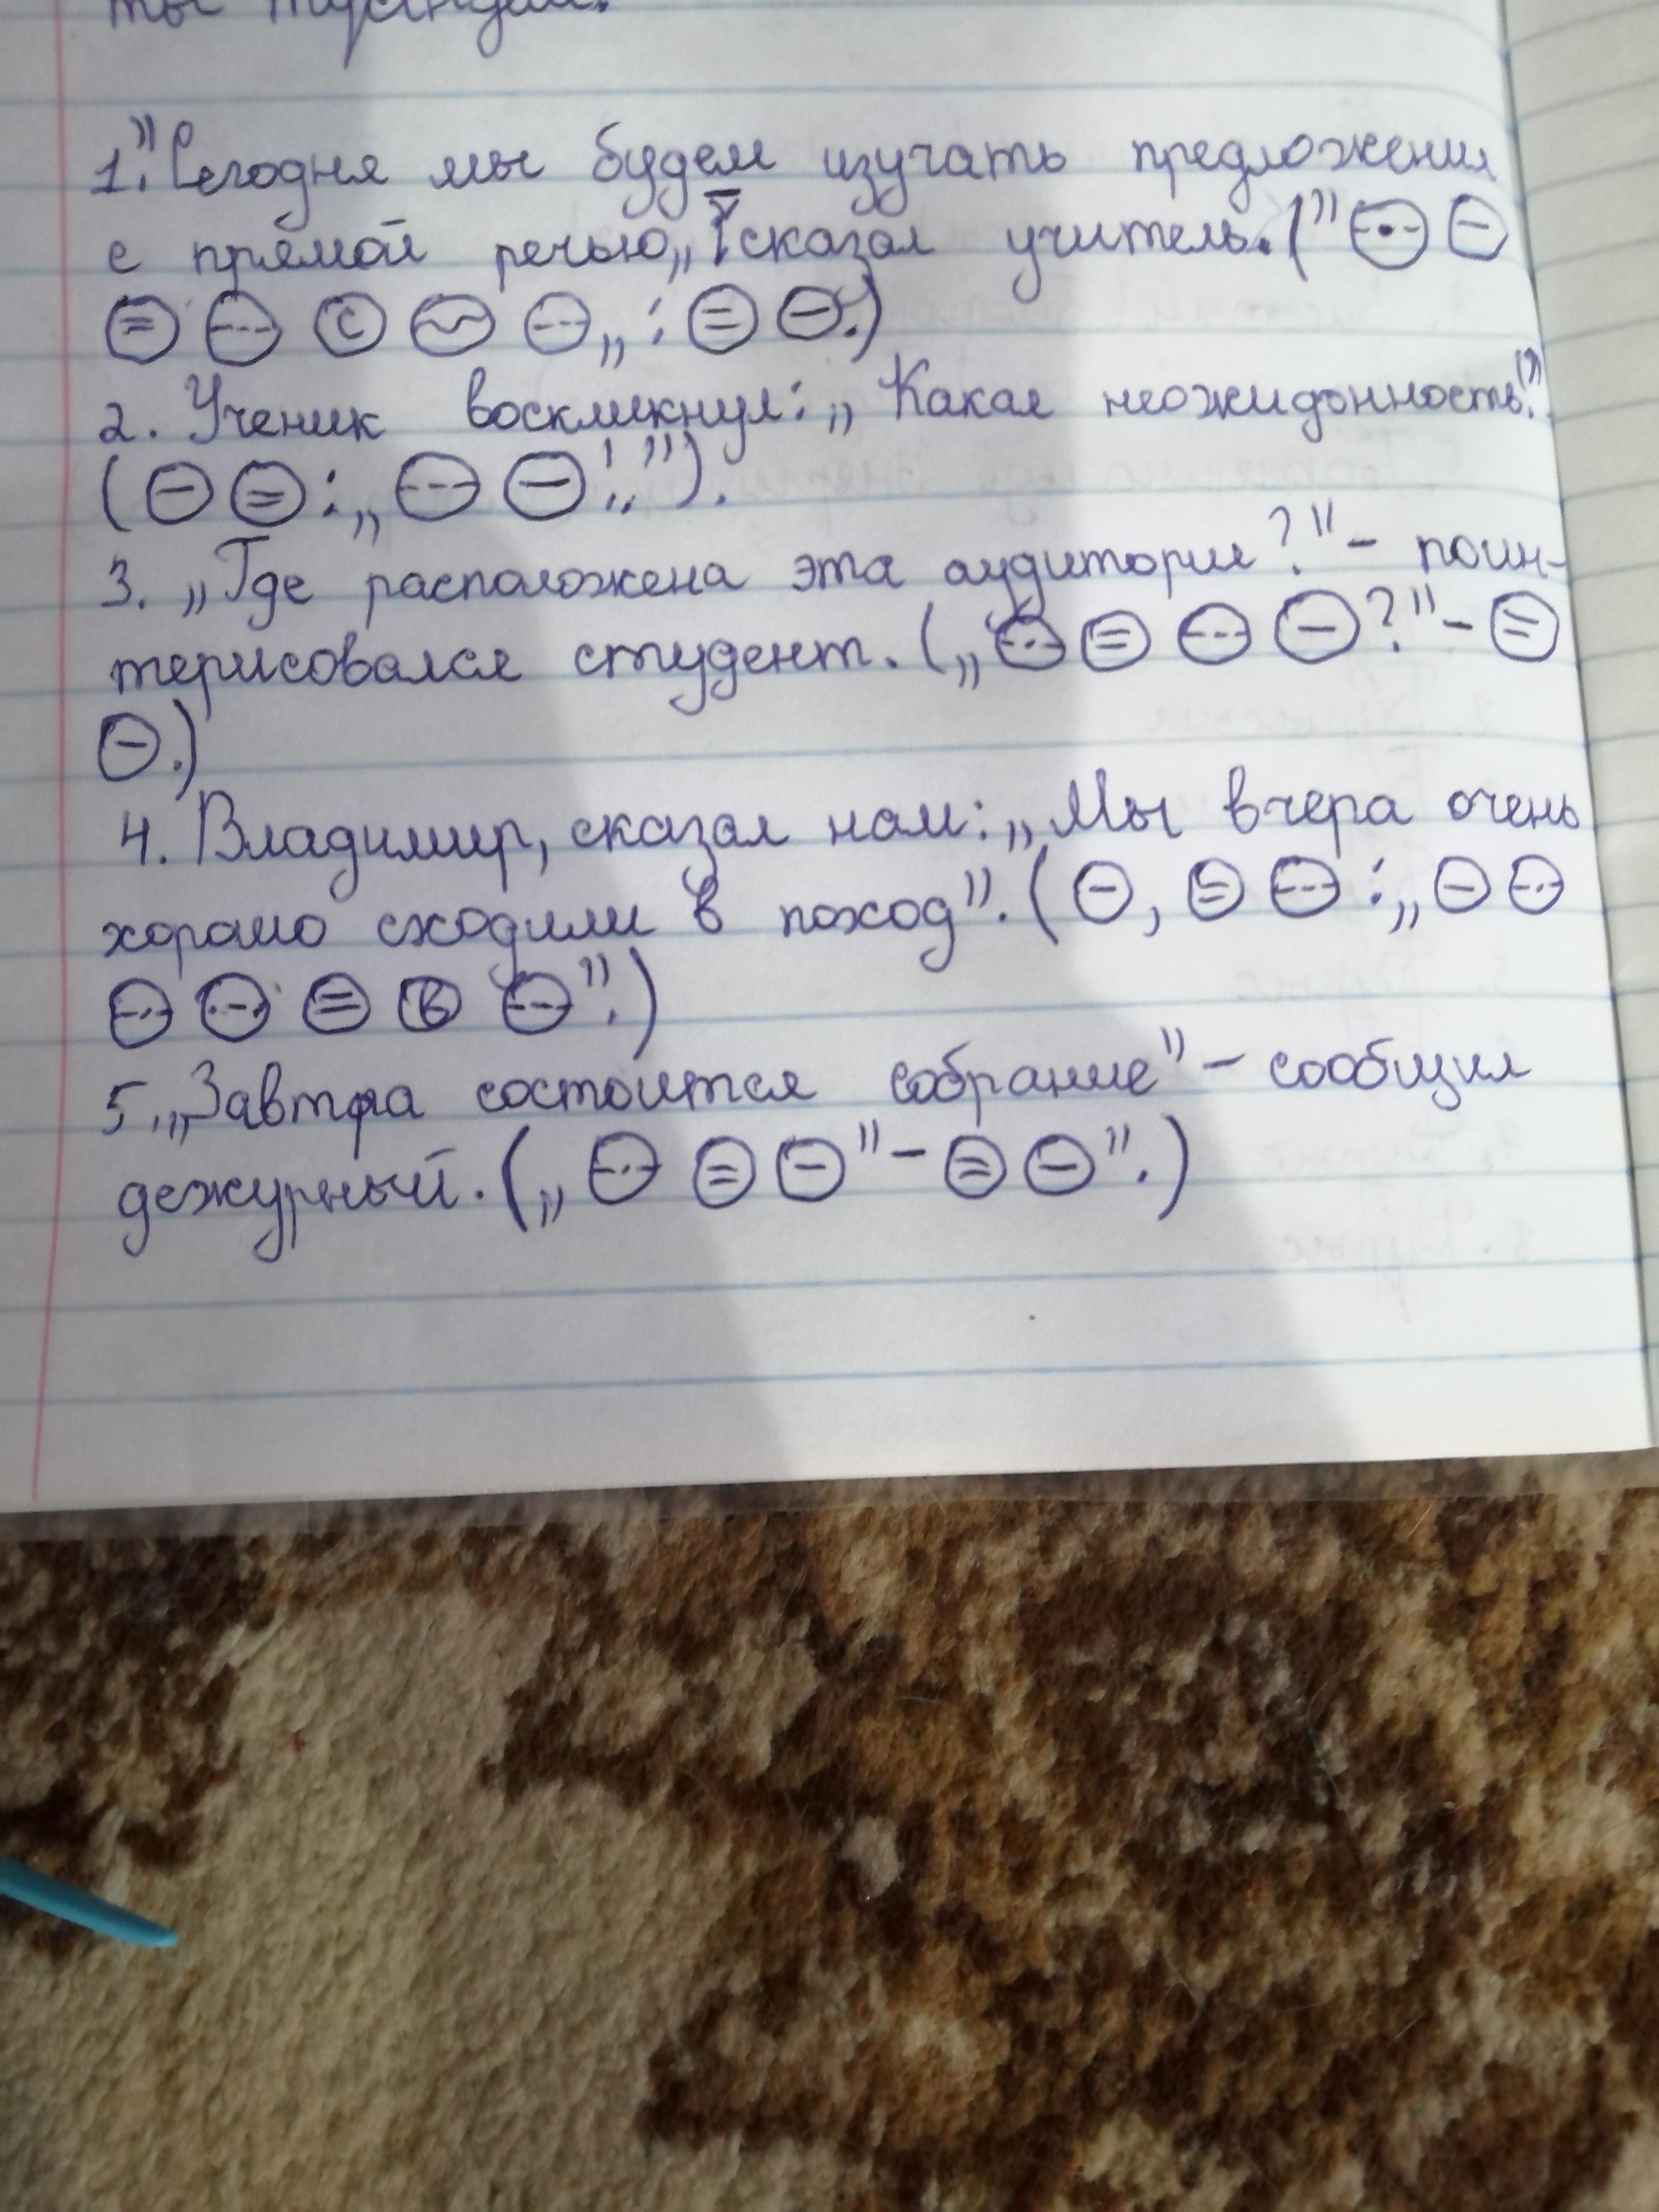 ты
1."Сегодня мы будем изучать предложения
с прямой речью„ сказал учитель.("
с „:.)
2. Ученик воскликнул: „Какая неожиданность!"
( :„ !..").
3. „Где расположена эта аудитория?" – поин-
терисовался студент. („ ?" –
.)
4. Владимир, сказал нам: „Мы вчера очень
хорошо сходили в поход". ( , :„
в ".)
5. „Завтра состоится собрание" – сообщил
дежурный. („ " – ".)